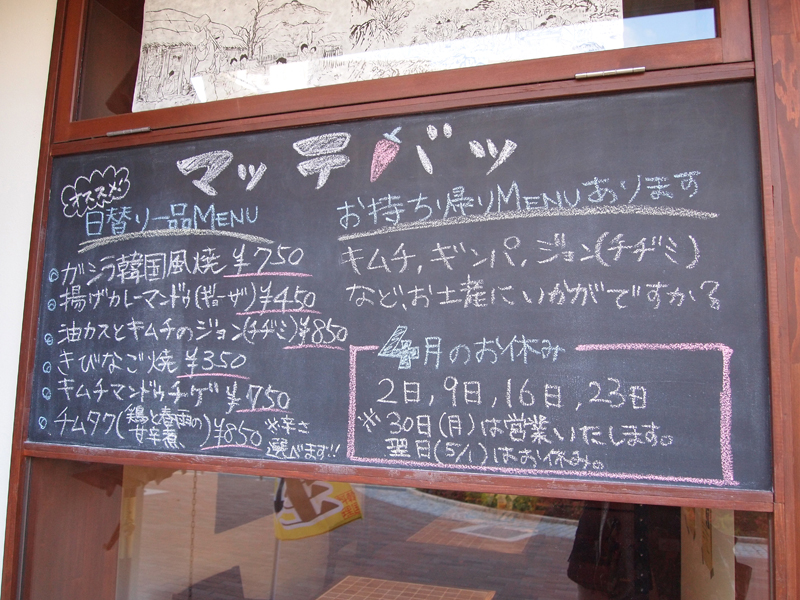 マッテパッ
オススメ!
日替り一品MENU
◎ ガシラ韓国風焼 ¥750
◎ 揚げカレーマンドゥ(ギョーザ)¥450
◎ 油カスとキムチのジョン(チヂミ)¥850
◎ きびなご焼 ¥350
◎ キムチマンドゥチゲ ¥750
◎ チムタク(鶏と春雨の甘辛煮、)¥850 ※辛さ
選べます!!
お持ち帰りMENUあります
キムチ,ギンパ,ジョン(チヂミ)
など、お土産にいかがですか?
4月のお休み
2日,9日,16日,23日
※30日(月)は営業いたします。
翌日(5/1)はお休み。